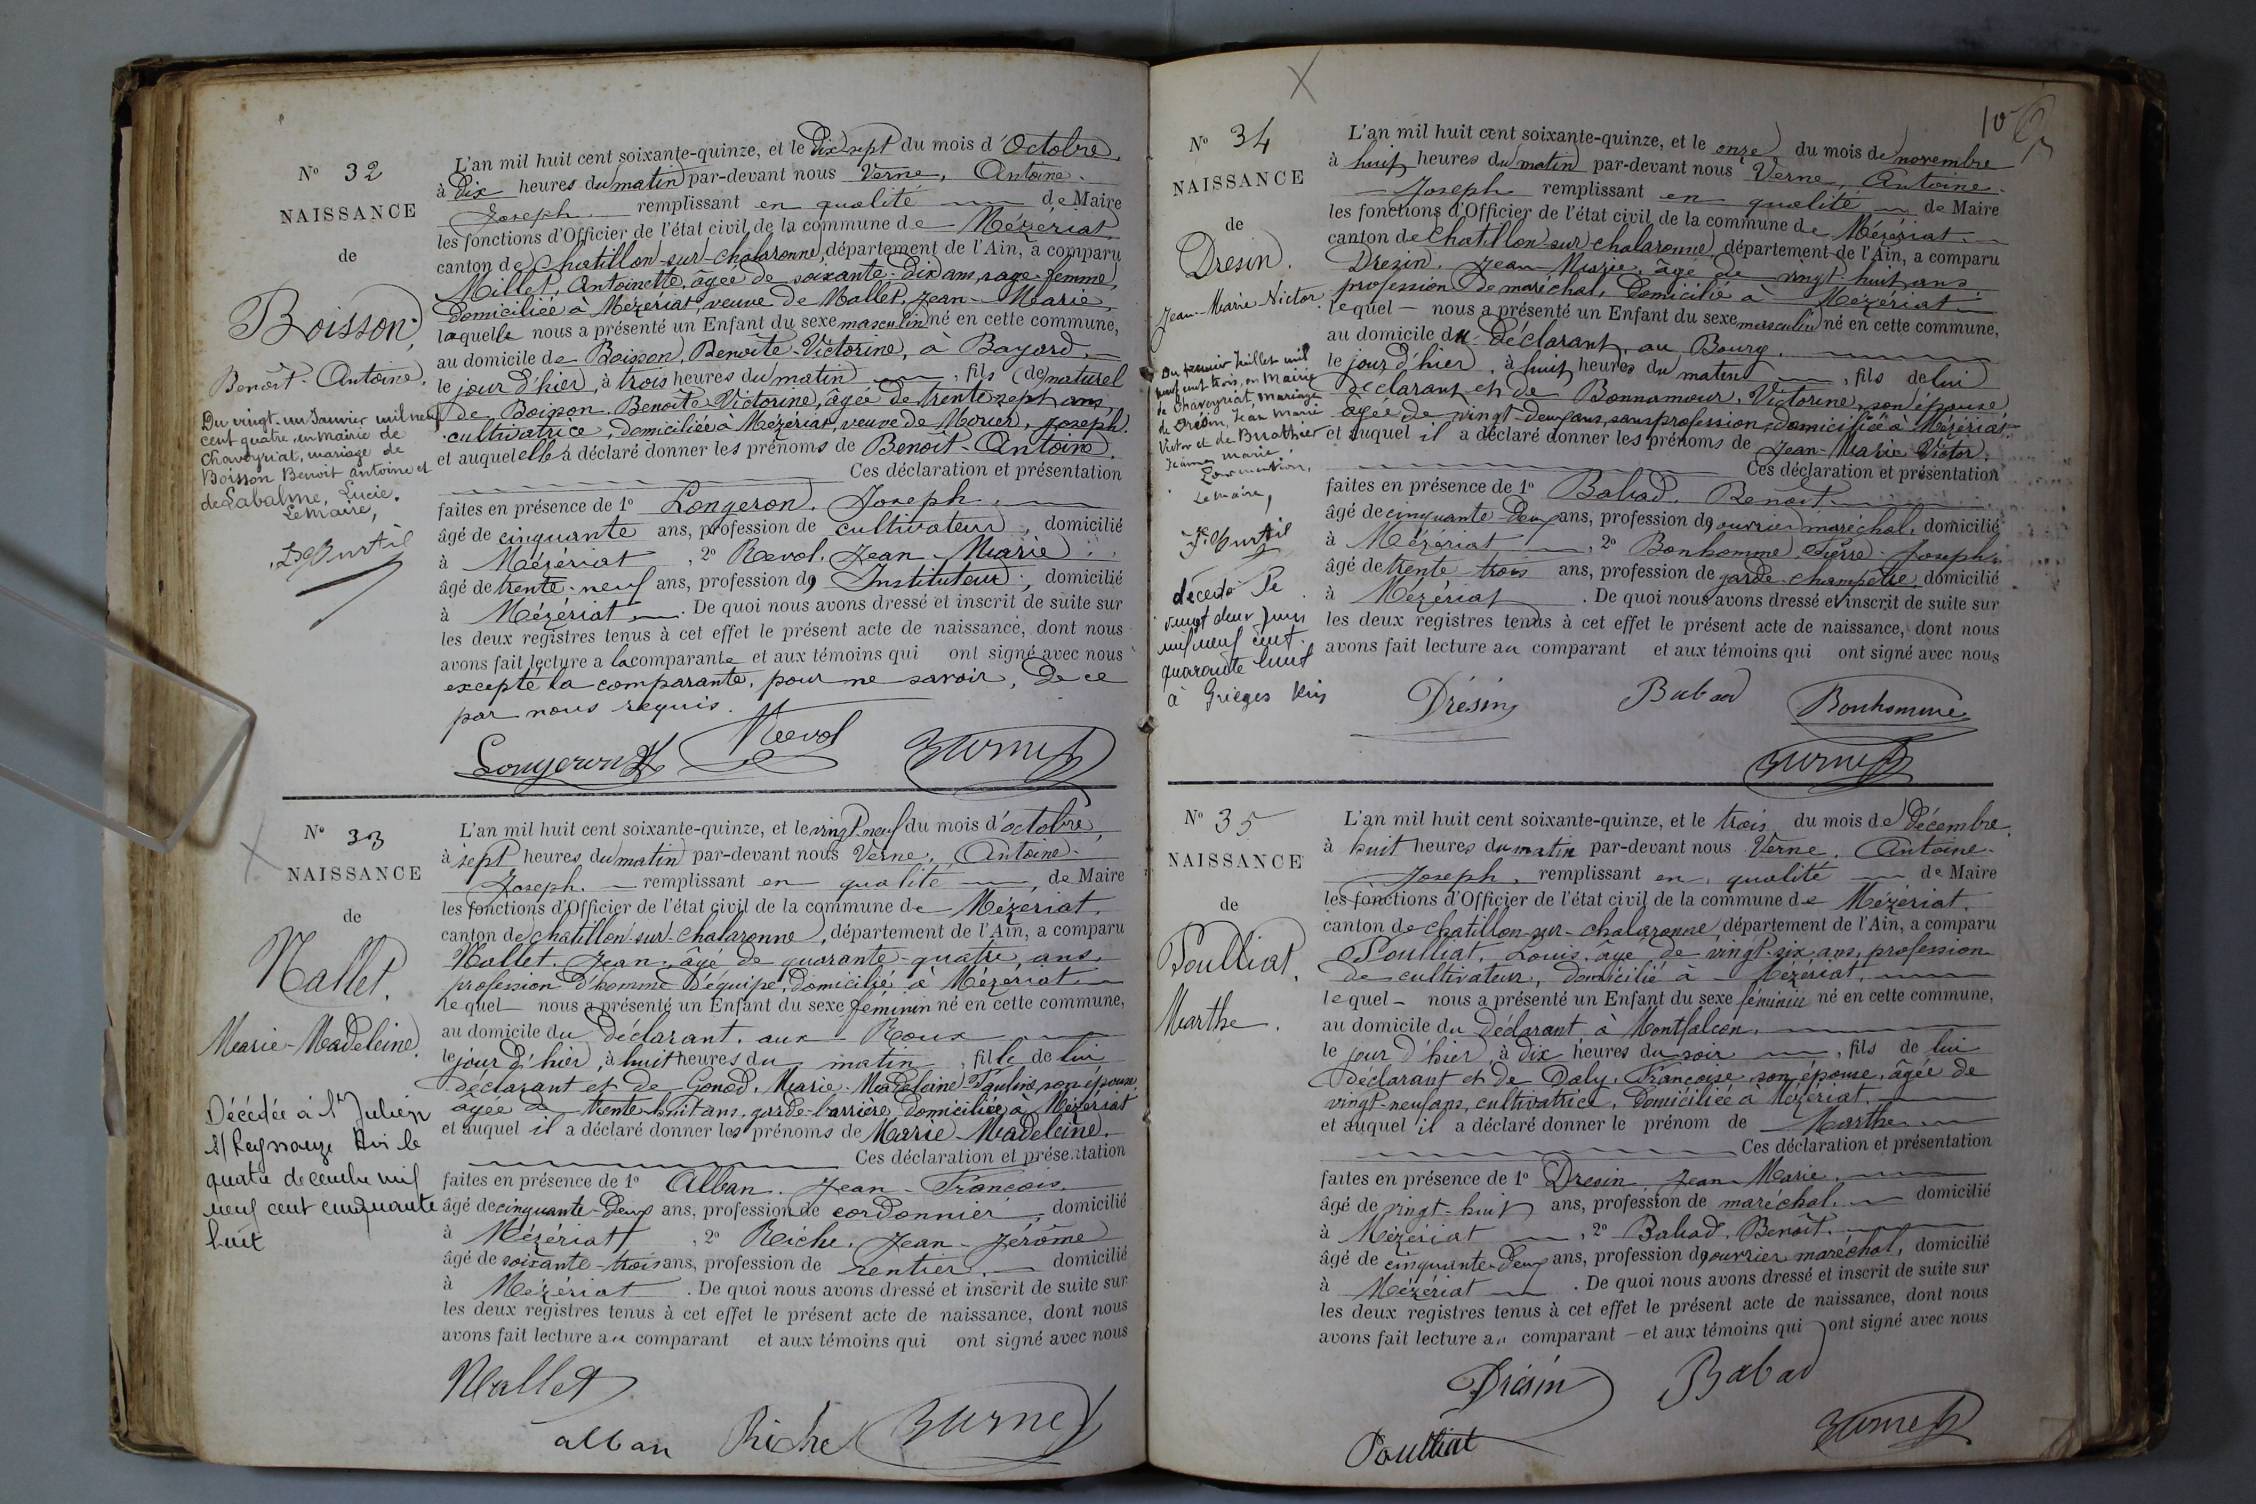 N° 32
NAISSANCE
de
Boisson,
Benoît-Antoine.
Du vingt-un Janvier mil neuf
cent quatre, en mairie de
Chaveyriat, mariage de
Boisson Benoit antoine et
de Labalme, Lucie.
Le Maire,
L'an mil huit cent soixante-quinze, et le dix sept du mois d'Octobre,
à dix heures du matin par-devant nous Verne, Antoine-
Joseph. remplissant en qualité de Maire
les fonctions d'Officier de l'état civil de la commune de Mézériat
canton de Chatillon-sur-chalaronne, département de l'Ain, a comparu
Millet, Antoinette, âgée de soixante-dix ans, sage-femme,
domiciliée à Mézériat, veuve de Mallet, Jean-Marie,
laquelle nous a présenté un Enfant du sexe masculin né en cette commune,
au domicile de Boisson, Benoîte-Victorine, à Bayard,
le jour d'hier, à trois heures du matin, fils (de) naturel
de Boisson, Benoîte-Victorine, âgée de trente sept ans,
cultivatrice, domiciliée à Mézériat, veuve de Morier, Joseph.
et auquel elle a déclaré donner les prénoms de Benoit-Antoine.
Ces déclaration et présentation
faites en présence de 1° Longeron, Joseph,
âgé de cinquante ans, profession de cultivateur, domicilié
à Mézériat, 2° Revol, Jean-Marie,
âgé de trente-neuf ans, profession d' Instituteur, domicilié
à Mézériat. De quoi nous avons dressé et inscrit de suite sur
les deux registres tenus à cet effet le présent acte de naissance, dont nous
avons fait lecture a la comparante et aux témoins qui ont signé avec nous
excepté la comparante, pour ne savoir, de ce
par nous requis.
Longeron Revol Verne
N° 33
NAISSANCE
de
Mallet,
Marie-Madeleine.
Décédée à St Julien
s/ Reyssouze Ain le
quatre decembre mil
neuf cent cinquante
huit
L'an mil huit cent soixante-quinze, et le vingt-neuf du mois d'octobre,
à sept heures du matin par-devant nous Verne, Antoine-
Joseph. remplissant en qualité de Maire
les fonctions d'Officier de l'état civil de la commune de Mézériat.
canton de chatillon-sur-chalaronne, département de l'Ain, a comparu
Mallet, Jean, âgé de quarante-quatre, ans,
profession d'homme d'équipe, domicilié à Mézériat.
lequel nous a présenté un Enfant du sexe féminin né en cette commune,
au domicile du déclarant, aux Roux
le jour d'hier, à huit heures du matin, fille de lui
déclarant et de Gonod, Marie-Madeleine Pauline, son épouse,
âgée de trente huit ans, garde-barrière, domiciliée à Mézériat
et auquel il a déclaré donner les prénoms de Marie-Madeleine.
Ces déclaration et présentation
faites en présence de 1° Alban, Jean-François,
âgé de cinquante-deux ans, profession de cordonnier, domicilié
à Mézériat, 2° Riche, Jean-Jérôme
âgé de soixante-trois ans, profession de rentier, domicilié
à Mézériat. De quoi nous avons dressé et inscrit de suite sur
les deux registres tenus à cet effet le présent acte de naissance, dont nous
avons fait lecture au comparant et aux témoins qui ont signé avec nous
Mallet
alban Riche Verne
10
N° 34
NAISSANCE
de
Dresin.
Jean-Marie Victor.
Du premier Juillet mil
neuf cent trois, en Mairie
de Chaveyriat, mariage
de Dresin, Jean Marie
Victor et de Brothier
Jeanne Marie
Pour mention,
Le maire,
décédé le
vingt deux Juin
mil neuf cent
quarante huit
à Grièges Ain
L'an mil huit cent soixante-quinze, et le onze du mois de novembre
à huit heures du matin par-devant nous Verne, Antoine-
Joseph remplissant en qualité de Maire
les fonctions d'Officier de l'état civil de la commune de Mézériat.
canton de Chatillon-sur-chalaronne, département de l'Ain, a comparu
Drezin, Jean Marie, âgé de vingt huit ans,
profession de maréchal, domicilié à Mézériat
lequel nous a présenté un Enfant du sexe masculin né en cette commune,
au domicile du déclarant, au Bourg.
le jour d'hier, à huit heures du matin, fils de lui
déclarant et de Bonnamour, Victorine, son épouse,
âgée de vingt-deux ans, sans profession, domiciliée à Mézériat
et auquel il a déclaré donner les prénoms de Jean-Marie Victor.
Ces déclaration et présentation
faites en présence de 1° Babad, Benoit,
âgé de cinquante-deux ans, profession d'ouvrier maréchal, domicilié
à Mézériat, 2° Bonhomme, Pierre-Joseph,
âgé de trente-trois ans, profession de garde-champêtre, domicilié
à Mézériat. De quoi nous avons dressé et inscrit de suite sur
les deux registres tenus à cet effet le présent acte de naissance, dont nous
avons fait lecture au comparant et aux témoins qui ont signé avec nous
Drésin Babad Bonhomme
Verne
N° 35
NAISSANCE
de
Poulliat,
Marthe.
L'an mil huit cent soixante-quinze, et le trois du mois de Décembre,
à huit heures du matin par-devant nous Verne, Antoine-
Joseph, remplissant en qualité de Maire
les fonctions d'Officier de l'état civil de la commune de Mézériat.
canton de chatillon-sur-chalaronne, département de l'Ain, a comparu
Poulliat, Louis, âgé de vingt-six ans, profession
de cultivateur, domicilié à Mézériat,
lequel nous a présenté un Enfant du sexe féminin né en cette commune,
au domicile du déclarant à Montfalcon,
le jour d'hier, à dix heures du soir, fils de lui
déclarant et de Daly, Françoise, son épouse, âgée de
vingt-neuf ans, cultivatrice, domiciliée à Mézériat.
et auquel il a déclaré donner le prénom de Marthe
Ces déclaration et présentation
faites en présence de 1° Dresin, Jean-Marie,
âgé de vingt-huit ans, profession de maréchal, domicilié
à Mézériat, 2° Babad, Benoît,
âgé de cinquante-deux ans, profession d'ouvrier maréchal, domicilié
à Mézériat. De quoi nous avons dressé et inscrit de suite sur
les deux registres tenus à cet effet le présent acte de naissance, dont nous
avons fait lecture au comparant et aux témoins qui ont signé avec nous
Drésin Babad
Poulliat Verne